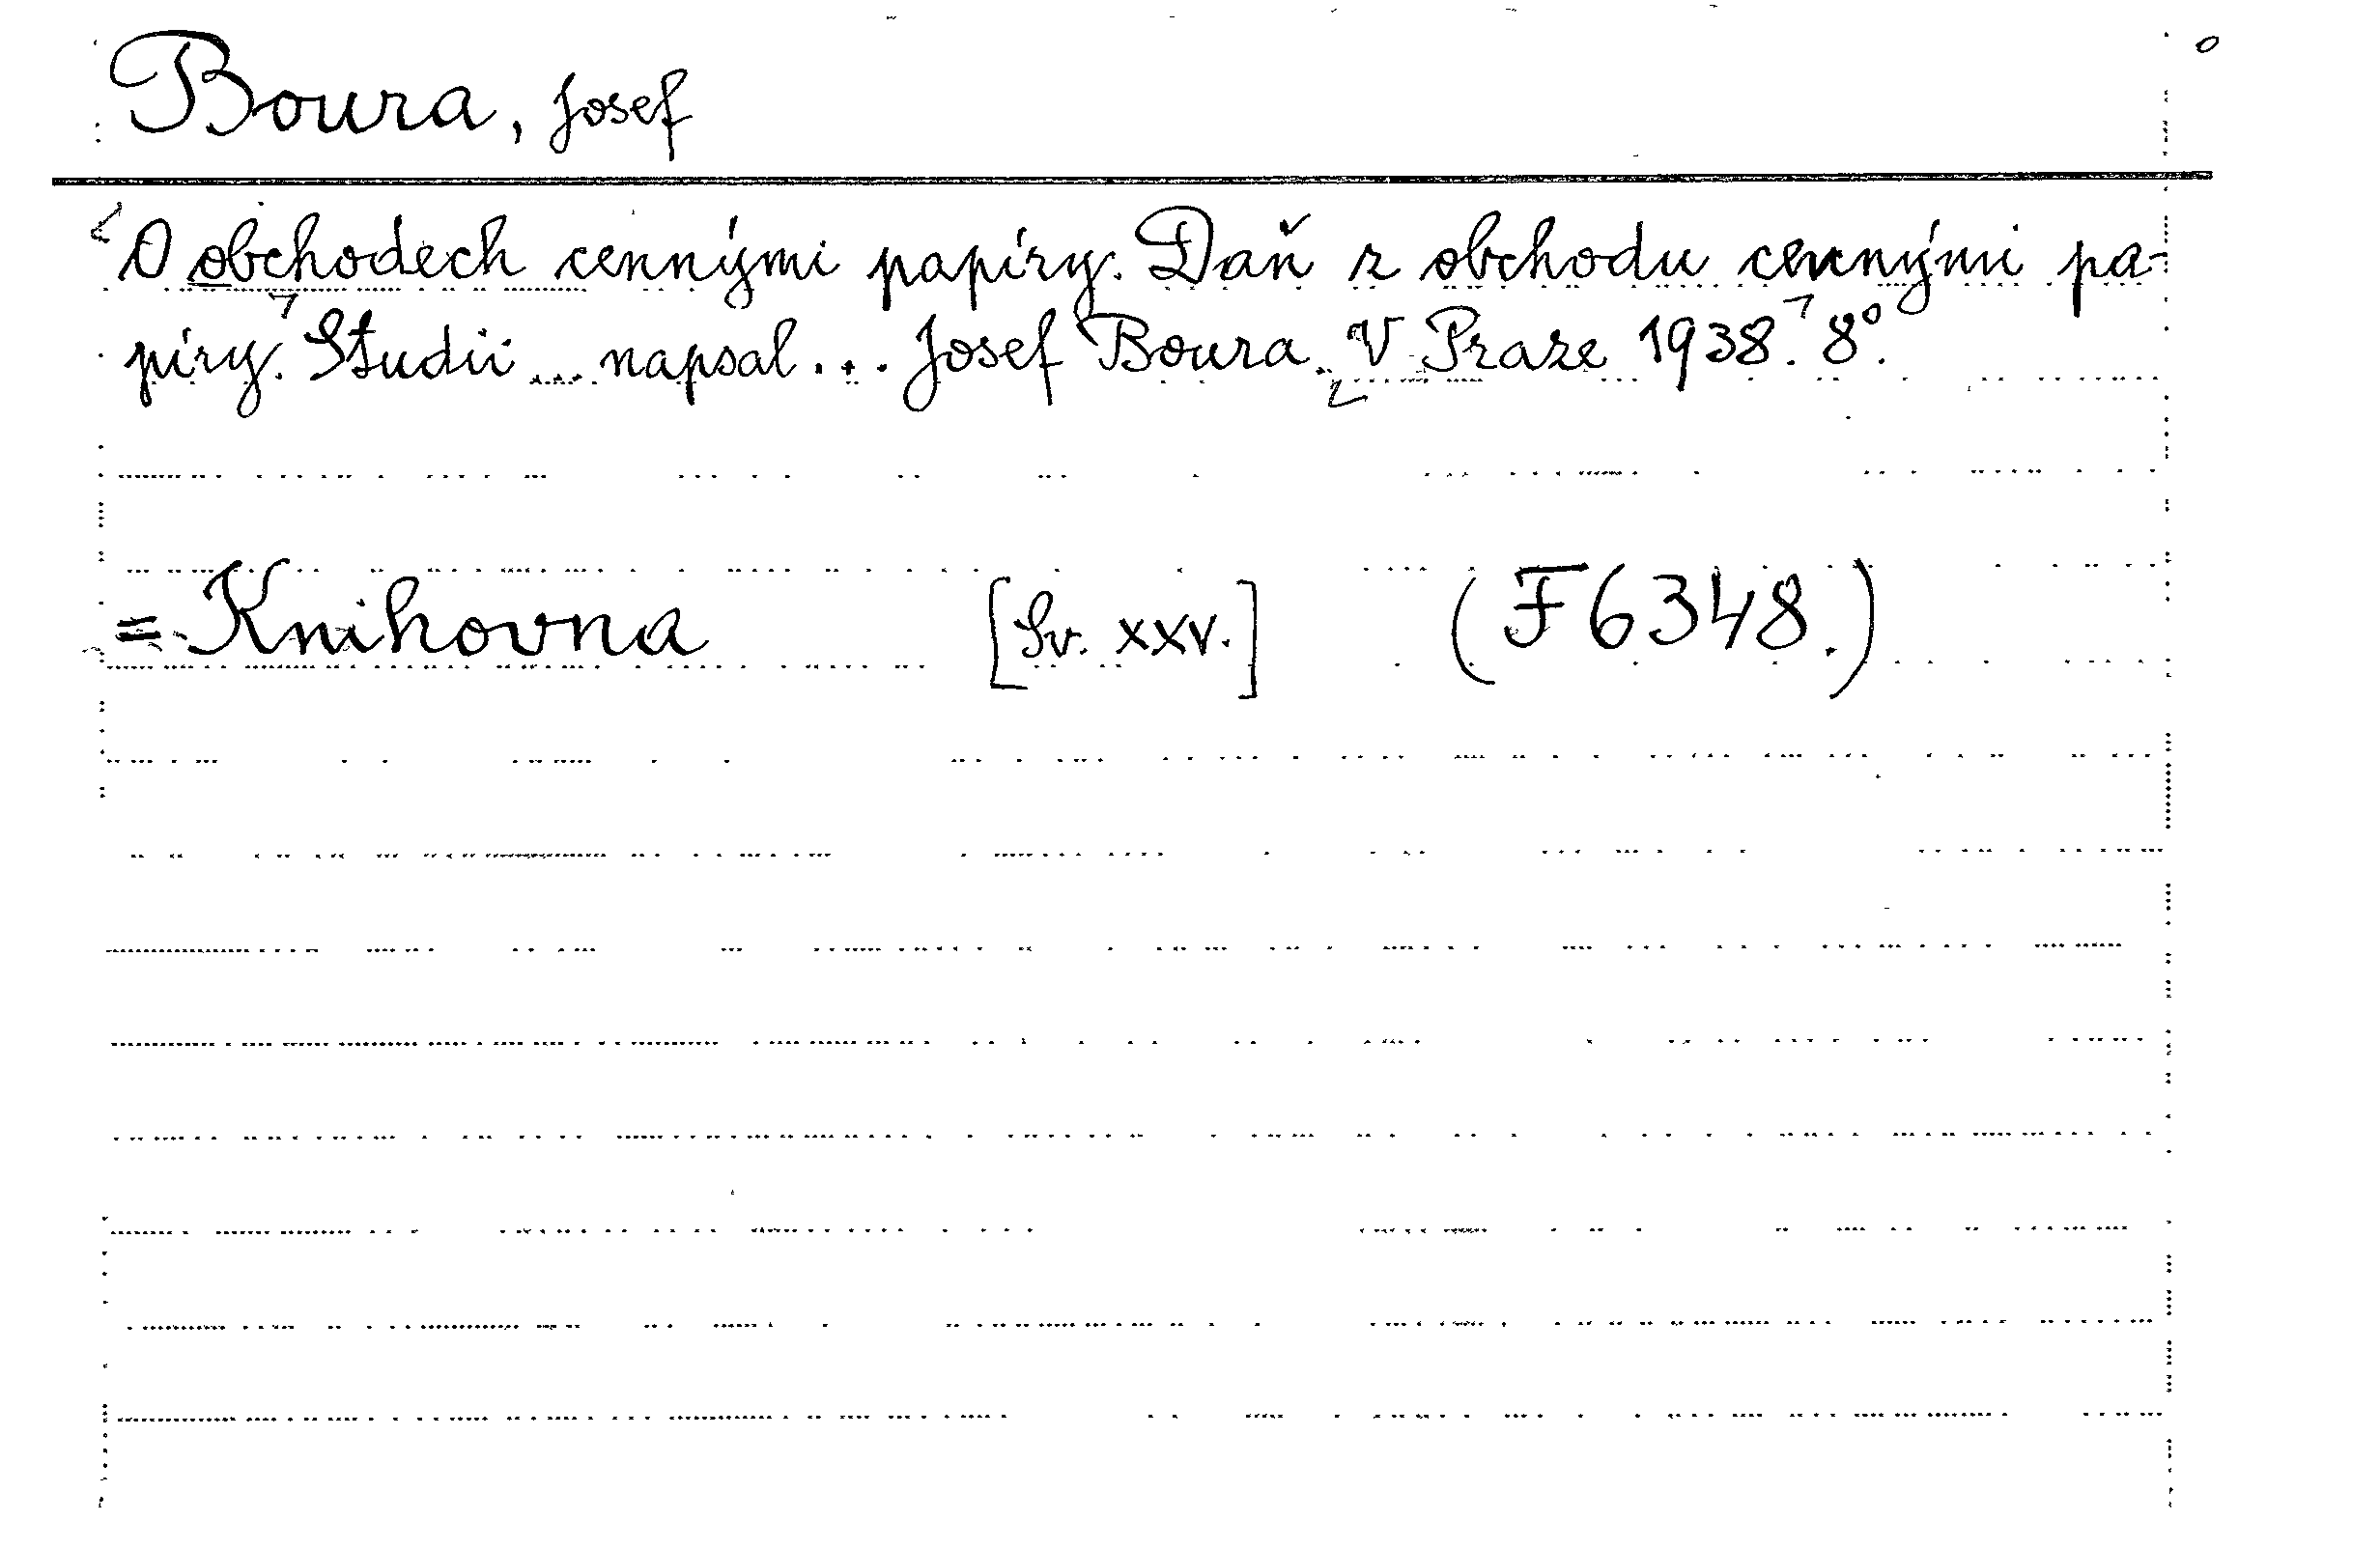 Boura, Josef
O obchodech cennými papíry. Daň z obchodu cennými pa-
píry. Studii ... napsal ... Josef Boura. V Praze 1938. 8°.
= Knihovna [Sv. XXV.] (F 6348.)